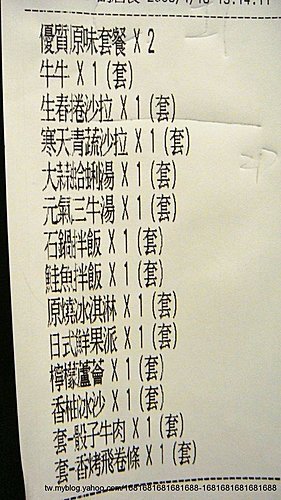 優質原味套餐 X 2
牛牛 X 1 (套)
生春捲沙拉 X 1 (套)
寒天青蔬沙拉 X 1 (套)
大蒜蛤蜊湯 X 1 (套)
元氣三牛湯 X 1 (套)
石鍋拌飯 X 1 (套)
鮭魚拌飯 X 1 (套)
原燒冰淇淋 X 1 (套)
日式鮮果派 X 1 (套)
檸檬蘆薈 X 1 (套)
香柚冰沙 X 1 (套)
套-骰子牛肉 X 1 (套)
套-香烤飛卷條 X 1 (套)
tw.myblog.yahoo.com/1681681681681688-1681681681681688